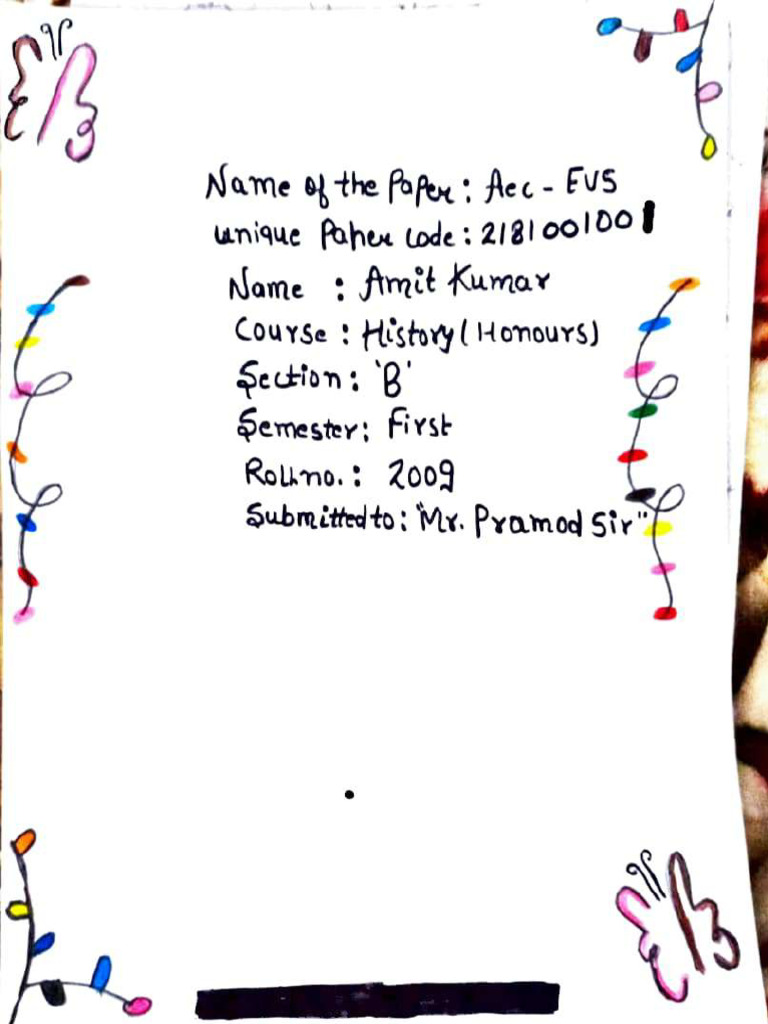 Name of the Paper: Aec - EVS
unique Paper code: 2181001001
Name : Amit Kumar
Course : History (Honours)
Section: 'B'
Semester: First
Roll no. : 2009
Submitted to: "Mr. Pramod Sir"